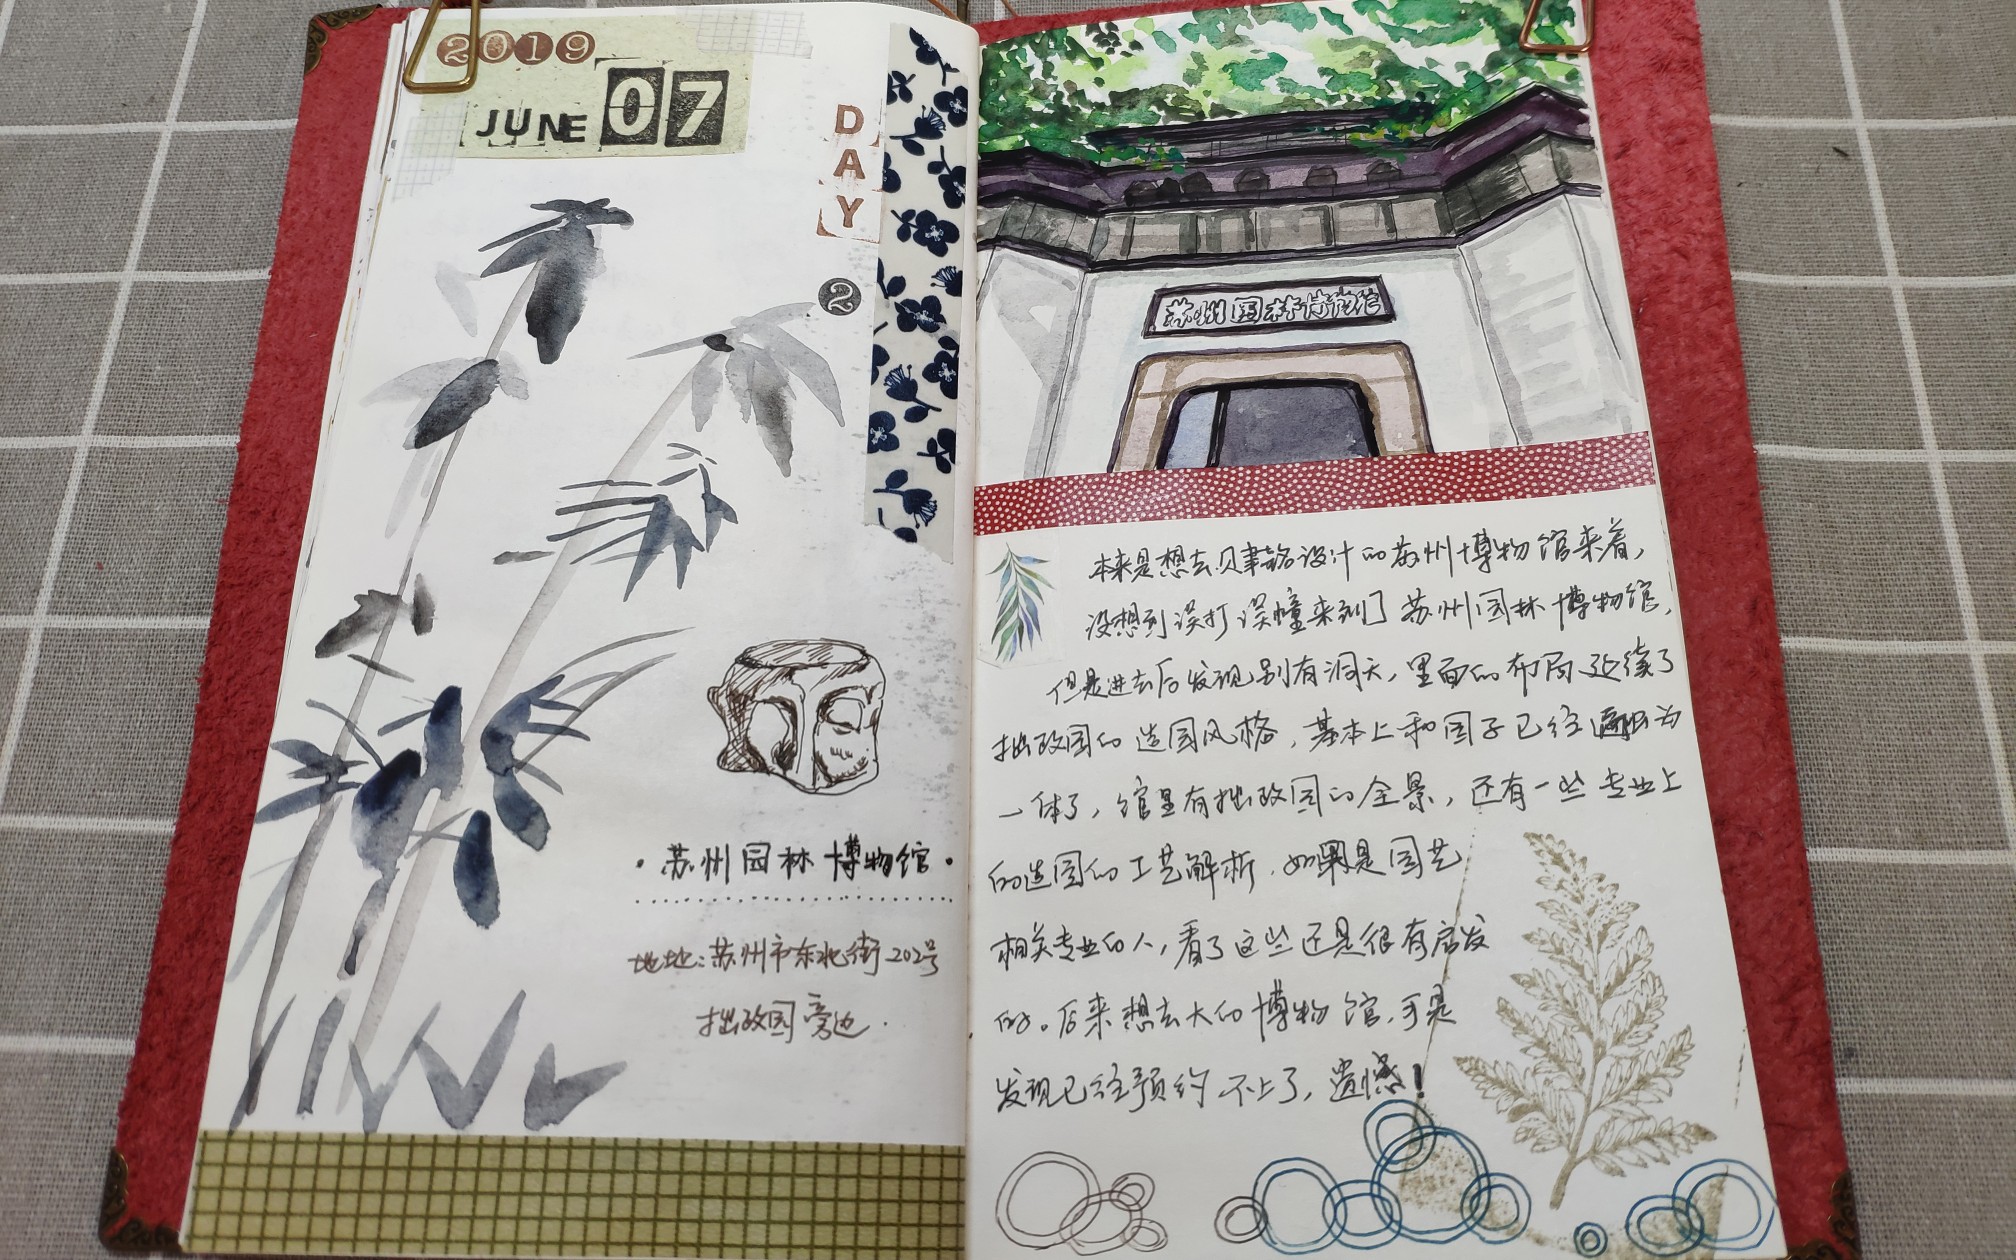 2019
JUNE 07
DAY
2
·苏州园林博物馆·
地址:苏州市东北街202号
拙政园旁边.
苏州园林博物馆
本来是想去贝聿铭设计的苏州博物馆来着,
没想到误打误撞来到了苏州园林博物馆,
但是进去后发现别有洞天,里面的布局延续了
拙政园的造园风格,基本上和园子已经融为
一体了,馆里有拙政园的全景,还有一些专业上
的造园的工艺解析.如果是园艺
相关专业的人,看了这些还是很有启发
的。后来想去大的博物馆,可是
发现已经预约不上了,遗憾!